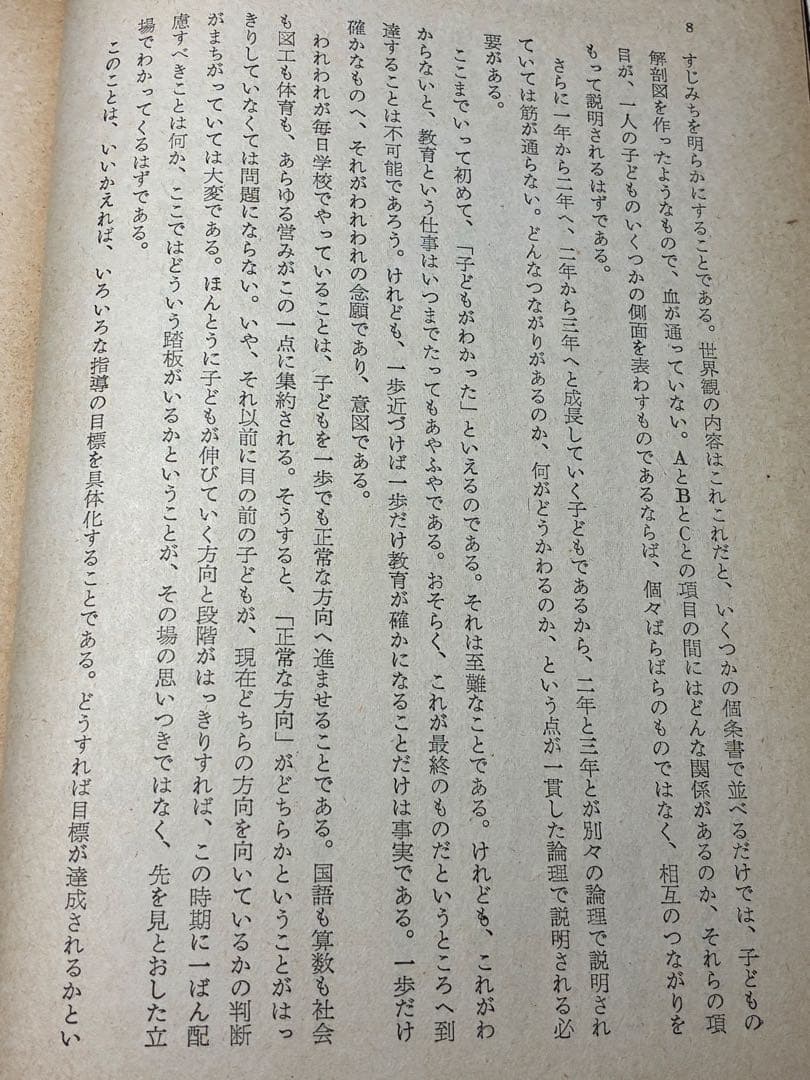 8
すじみちを明らかにすることである。世界観の内容はこれこれだと、いくつかの個条書で並べるだけでは、子どもの
解剖図を作ったようなもので、血が通っていない。AとBとCとの項目の間にはどんな関係があるのか、それらの項
目が、一人の子どものいくつかの側面を表わすものであるならば、個々ばらばらのものではなく、相互のつながりを
もって説明されるはずである。
さらに一年から二年へ、二年から三年へと成長していく子どもであるから、二年と三年とが別々の論理で説明され
ていては筋が通らない。どんなつながりがあるのか、何がどうかわるのか、という点が一貫した論理で説明される必
要がある。
ここまでいって初めて、「子どもがわかった」といえるのである。それは至難なことである。けれども、これがわ
からないと、教育という仕事はいつまでたってもあやふやである。おそらく、これが最終のものだというところへ到
達することは不可能であろう。けれども、一歩近づけば一歩だけ教育が確かになることだけは事実である。一歩だけ
確かなものへ、それがわれわれの念願であり、意図である。
われわれが毎日学校でやっていることは、子どもを一歩でも正常な方向へ進ませることである。国語も算数も社会
も図工も体育も、あらゆる営みがこの一点に集約される。そうすると、「正常な方向」がどちらかということがはっ
きりしていなくては問題にならない。いや、それ以前に目の前の子どもが、現在どちらの方向を向いているかの判断
がまちがっていては大変である。ほんとうに子どもが伸びていく方向と段階がはっきりすれば、この時期に一ばん配
慮すべきことは何か、ここではどういう踏板がいるかということが、その場の思いつきではなく、先を見とおした立
場でわかってくるはずである。
このことは、いいかえれば、いろいろな指導の目標を具体化することである。どうすれば目標が達成されるかとい